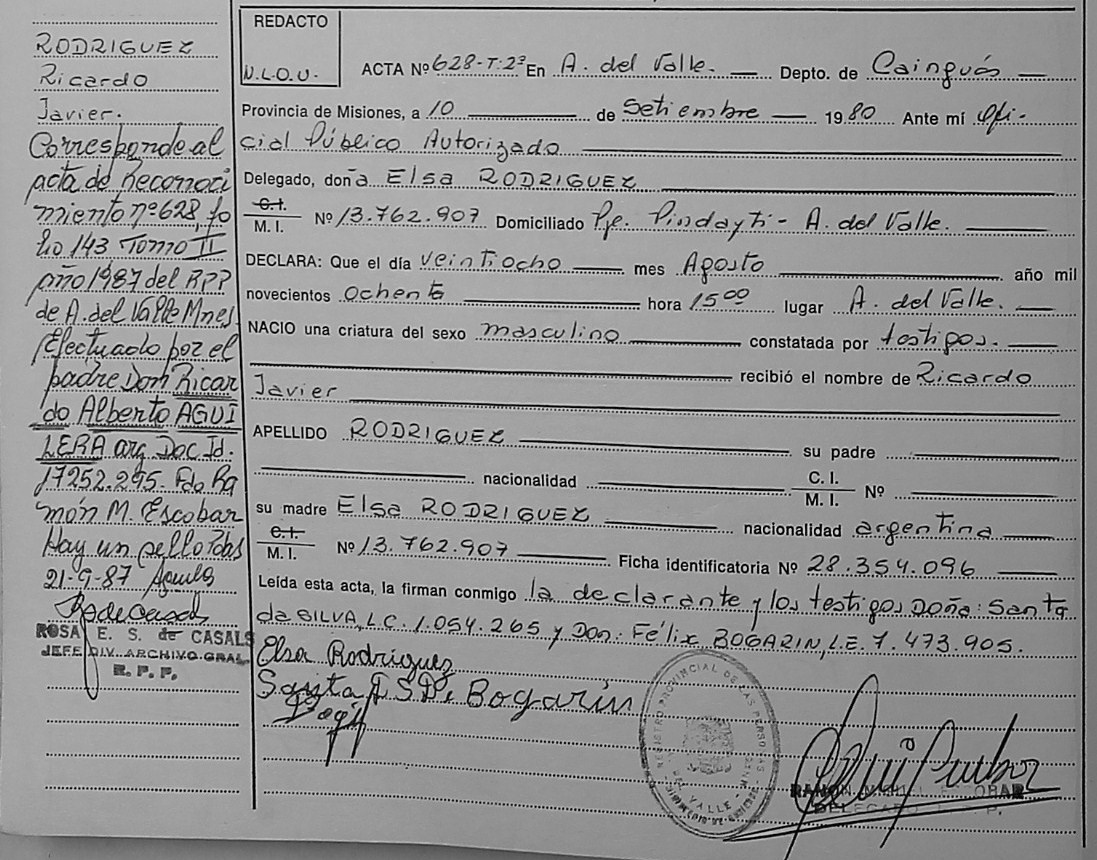 RODRIGUEZ
Ricardo
Javier.
Corresponde al
acta de Reconoci
miento nº 628, fo
lio 143 Tomo II
año 1987 del RPP
de A. del Valle Mnes.
Efectuado por el
padre Don Ricar
do Alberto AGUI
LERA arg Doc Id.
17252.295. Fdo Ra
món M. Escobar
Hay un sello
21-9-87
ROSA E. S. de CASALS
JEFE DIV. ARCHIVO GRAL
R. P. P.
REDACTO
N.L.O.U.
ACTA Nº 628-T:2º En A. del Valle. Depto. de Cainguás
Provincia de Misiones, a 10 de Setiembre 1980 Ante mí Ofi-
cial Público Autorizado
Delegado, doña Elsa RODRIGUEZ
C.I.
M. I. Nº 13.762.907 Domiciliado Pje. Pindayti - A. del Valle.
DECLARA: Que el día veintiocho mes Agosto año mil
novecientos ochenta hora 15 00 lugar A. del Valle.
NACIO una criatura del sexo masculino constatada por testigos.
recibió el nombre de Ricardo
Javier
APELLIDO RODRIGUEZ su padre
nacionalidad C. I.
M. I. Nº
su madre Elsa RODRIGUEZ nacionalidad argentina
C.I.
M. I. Nº 13.762.907 Ficha identificatoria Nº 28.354.096
Leída esta acta, la firman conmigo la declarante y los testigos Doña: Santa
da SILVA, L.C. 1.054.265 y Don: Félix BOGARIN, L.E. 7.473.905.
Elsa Rodriguez
Santa Bogarin
REGISTRO PROVINCIAL DE LAS PERSONAS
DEL VALLE